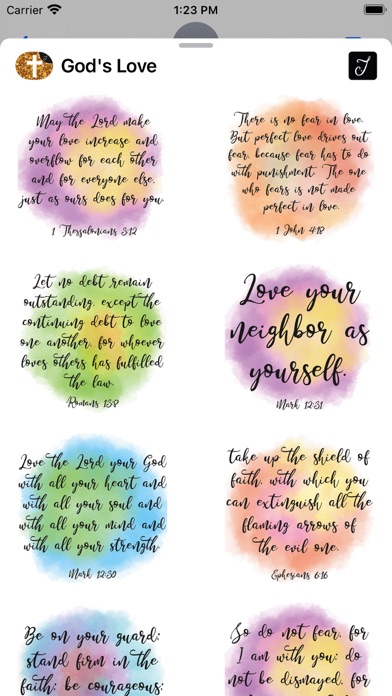 Carrier 1:23 PM
God's Love
May the Lord make
your love increase and
overflow for each other
and for everyone else,
just as ours does for you.
1 Thessalonians 3:12
There is no fear in love.
But perfect love drives out
fear, because fear has to do
with punishment. The one
who fears is not made
perfect in love.
1 John 4:18
Let no debt remain
outstanding, except the
continuing debt to love
one another, for whoever
loves others has fulfilled
the law.
Romans 13:8
Love your
neighbor as
yourself.
Mark 12:31
Love the Lord your God
with all your heart and
with all your soul and
with all your mind and
with all your strength.
Mark 12:30
take up the shield of
faith, with which you
can extinguish all the
flaming arrows of
the evil one.
Ephesians 6:16
Be on your guard;
stand firm in the
faith; be courageous;
So do not fear, for
I am with you; do
not be dismayed, for